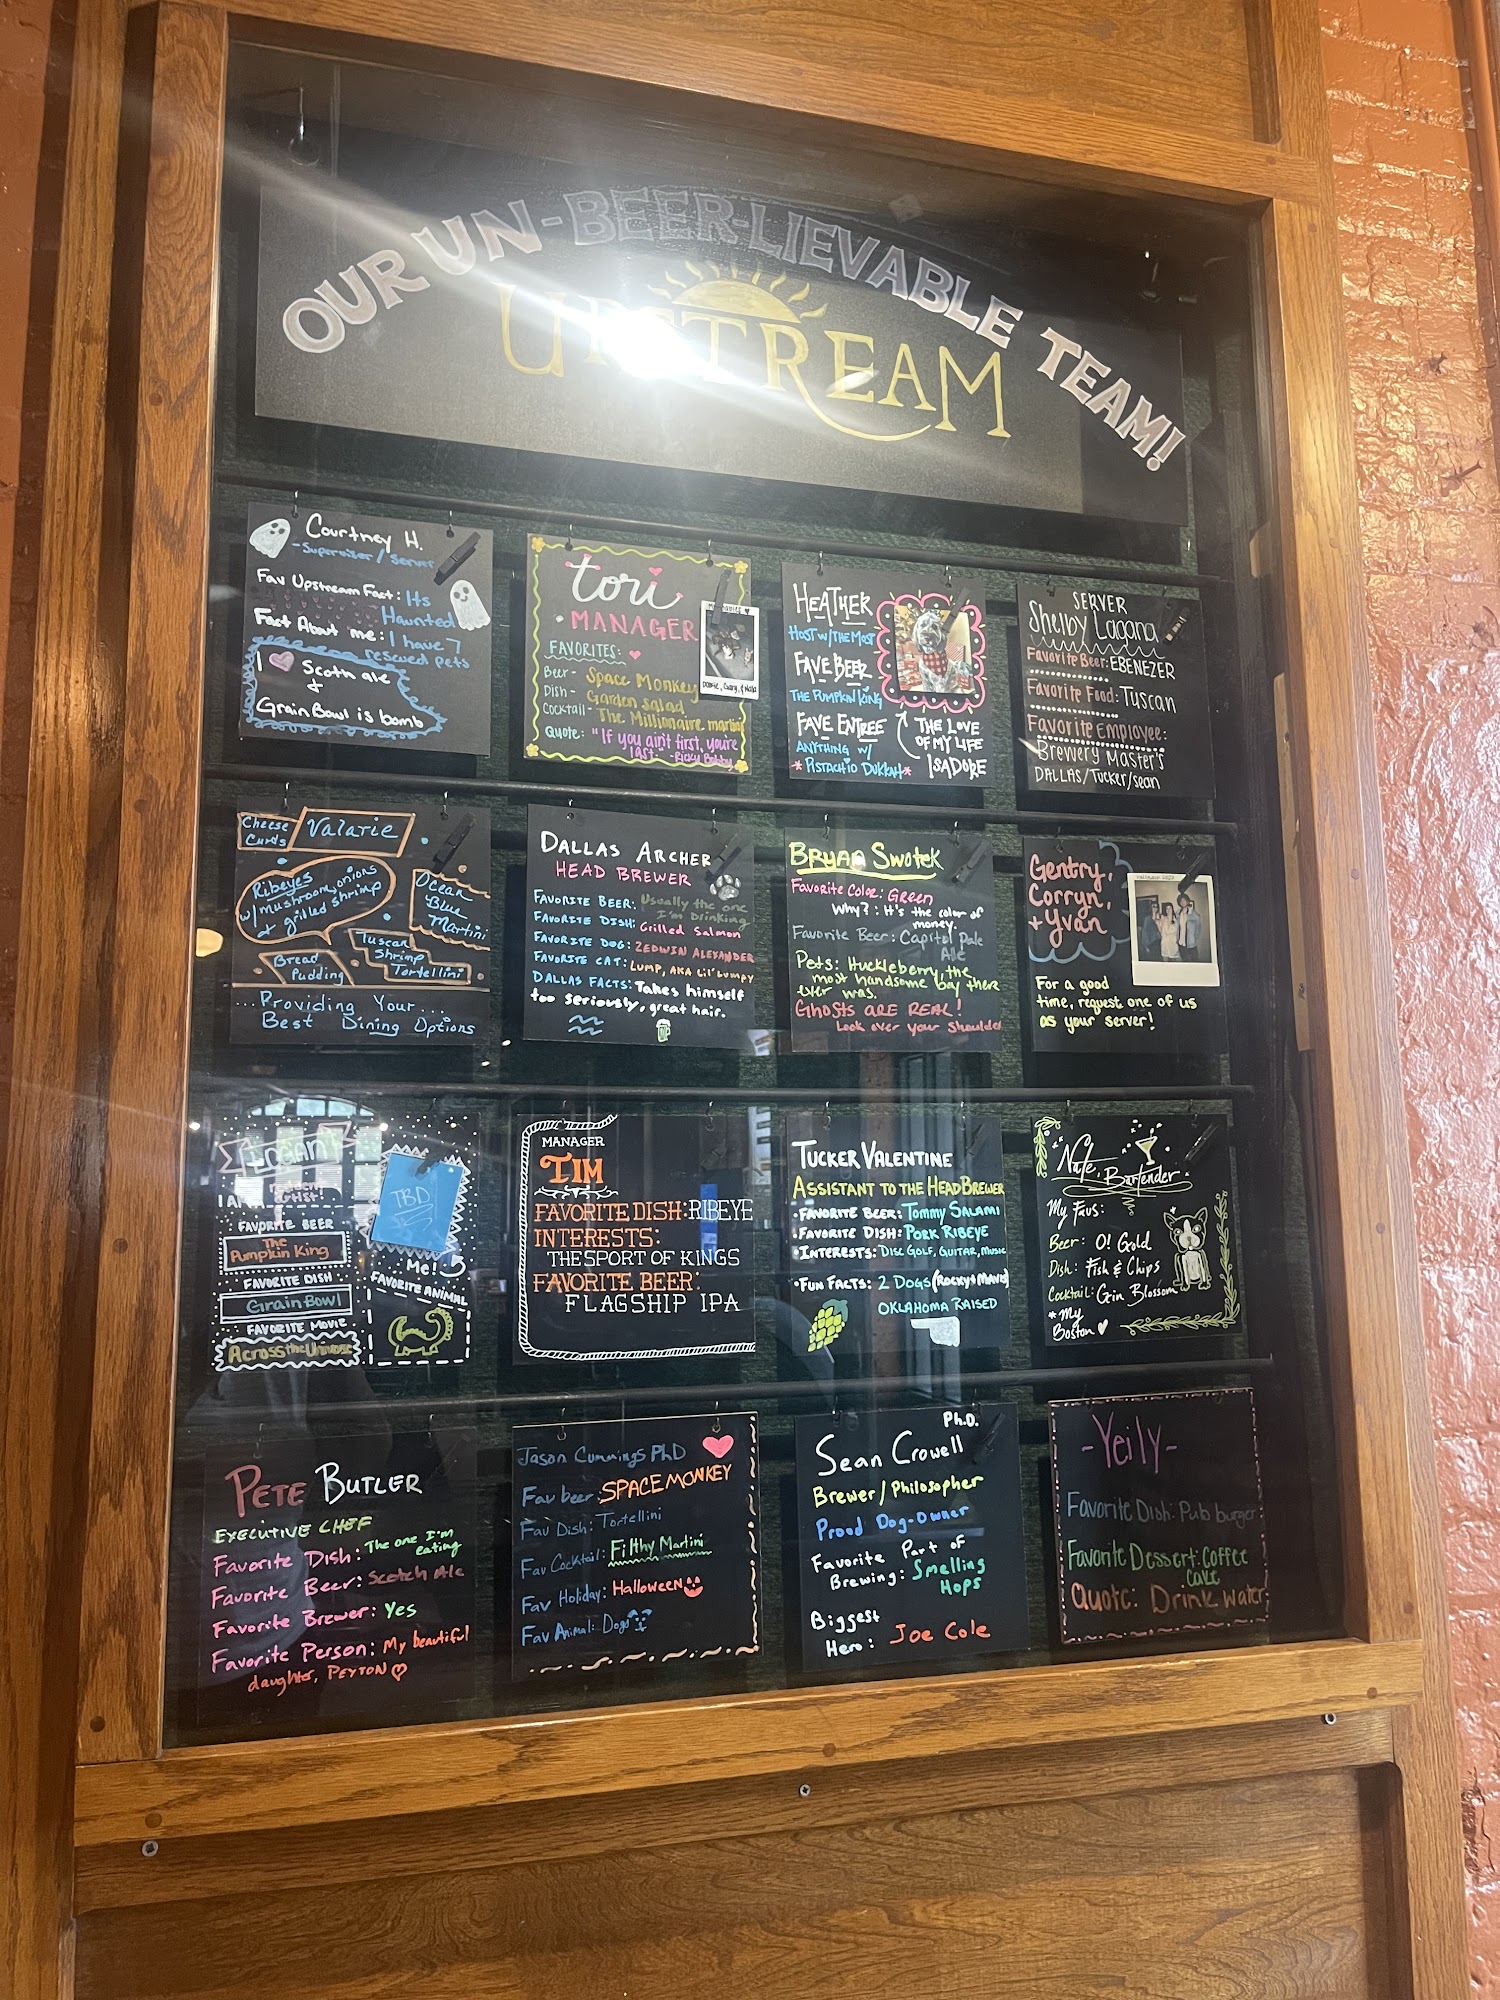 OUR UN-BEER-LIEVABLE TEAM!
UPSTREAM
Courtney H.
-Supervisor/Server
Fav Upstream Fact: Its
Haunted
Fact About me: I have 7
rescued pets
I Scotch ale
+
GrainBowl is bomb
tori
MANAGER
FAVORITES:
Beer- Space Monkey
Dish- Garden Salad
Cocktail- The Millionaire martini
Quote: "If you ain't first, you're
last." -Ricky Bobby
HEATHER
HOST W/THE MOST
FAVE BEER
THE PUMPKIN KING
FAVE ENTREE
ANYTHING W/
*PISTACHIO DUKKAH*
THE LOVE
OF MY LIFE
ISADORE
SERVER
Shelby Lagana
Favorite Beer: EBENEZER
Favorite Food: Tuscan
Favorite Employee:
Brewery Master's
DALLAS/Tucker/sean
Cheese
Curds
Valarie
Ribeyes
w/ mushroom, onions
+ grilled shrimp
Ocean
Blue
Martini
Tuscan
Shrimp
Tortellini
Bread
Pudding
...Providing Your...
Best Dining Options
DALLAS ARCHER
HEAD BREWER
FAVORITE BEER: Usually the one
I'm Drinking
FAVORITE DISH: Grilled Salmon
FAVORITE DOG: ZEDWIN ALEXANDER
FAVORITE CAT: LUMP, AKA Lil' Lumpy
DALLAS FACTS: Takes himself
too seriously, great hair.
BRYAN Swotek
Favorite Color: Green
Why?: It's the color of
money.
Favorite Beer: Capitol Pale
Ale
Pets: Huckleberry, the
most handsome boy there
ever was.
GHOSTS ARE REAL!
Look over your shoulder
Gentry,
Corryn,
+ Yvan
For a good
time, request one of us
as your server!
I AM
FAVORITE BEER
The
Pumpkin King
FAVORITE DISH
GrainBowl
FAVORITE MOVIE
Across the Universe
TBD
Me!
FAVORITE ANIMAL
MANAGER
TIM
FAVORITE DISH: RIBEYE
INTERESTS:
THE SPORT OF KINGS
FAVORITE BEER:
FLAGSHIP IPA
TUCKER VALENTINE
ASSISTANT TO THE HEAD BREWER
•FAVORITE BEER: Tommy SALAMI
•FAVORITE DISH: PORK RIBEYE
•INTERESTS: DISC GOLF, GUITAR, MUSIC
•FUN FACTS: 2 DOGS (ROCKY & MAVIS)
OKLAHOMA RAISED
Nate, Bartender
My Favs:
Beer: O! Gold
Dish: Fish & Chips
Cocktail: Gin Blossom
*My
Boston
PETE BUTLER
EXECUTIVE CHEF
Favorite Dish: The one I'm
eating
Favorite Beer: Scotch Ale
Favorite Brewer: Yes
Favorite Person: My beautiful
daughter, PEYTON
Jason Cummings PhD
Fav beer: SPACE MONKEY
Fav Dish: Tortellini
Fav Cocktail: Filthy Martini
Fav Holiday: Halloween
Fav Animal: Dogs
Ph.D.
Sean Crowell
Brewer/Philosopher
Proud Dog-Owner
Favorite Part of
Brewing: Smelling
Hops
Biggest
Hero: Joe Cole
-Yeily-
Favorite Dish: Pub burger
Favorite Dessert: Coffee
cake
Quote: Drink water